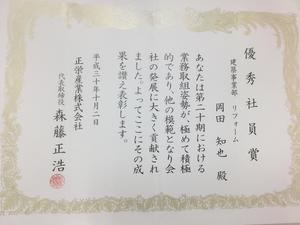 優秀社員賞
建築事業部 リフォーム
岡田 知也 殿
あなたは第二十期における
業務取組姿勢が、極めて積極
的であり、他の模範となり会
社の発展に大きく貢献され
ました。よってここにその成
果を讃え表彰します。
平成三十年十月二日
正栄産業株式会社
代表取締役 森藤正浩